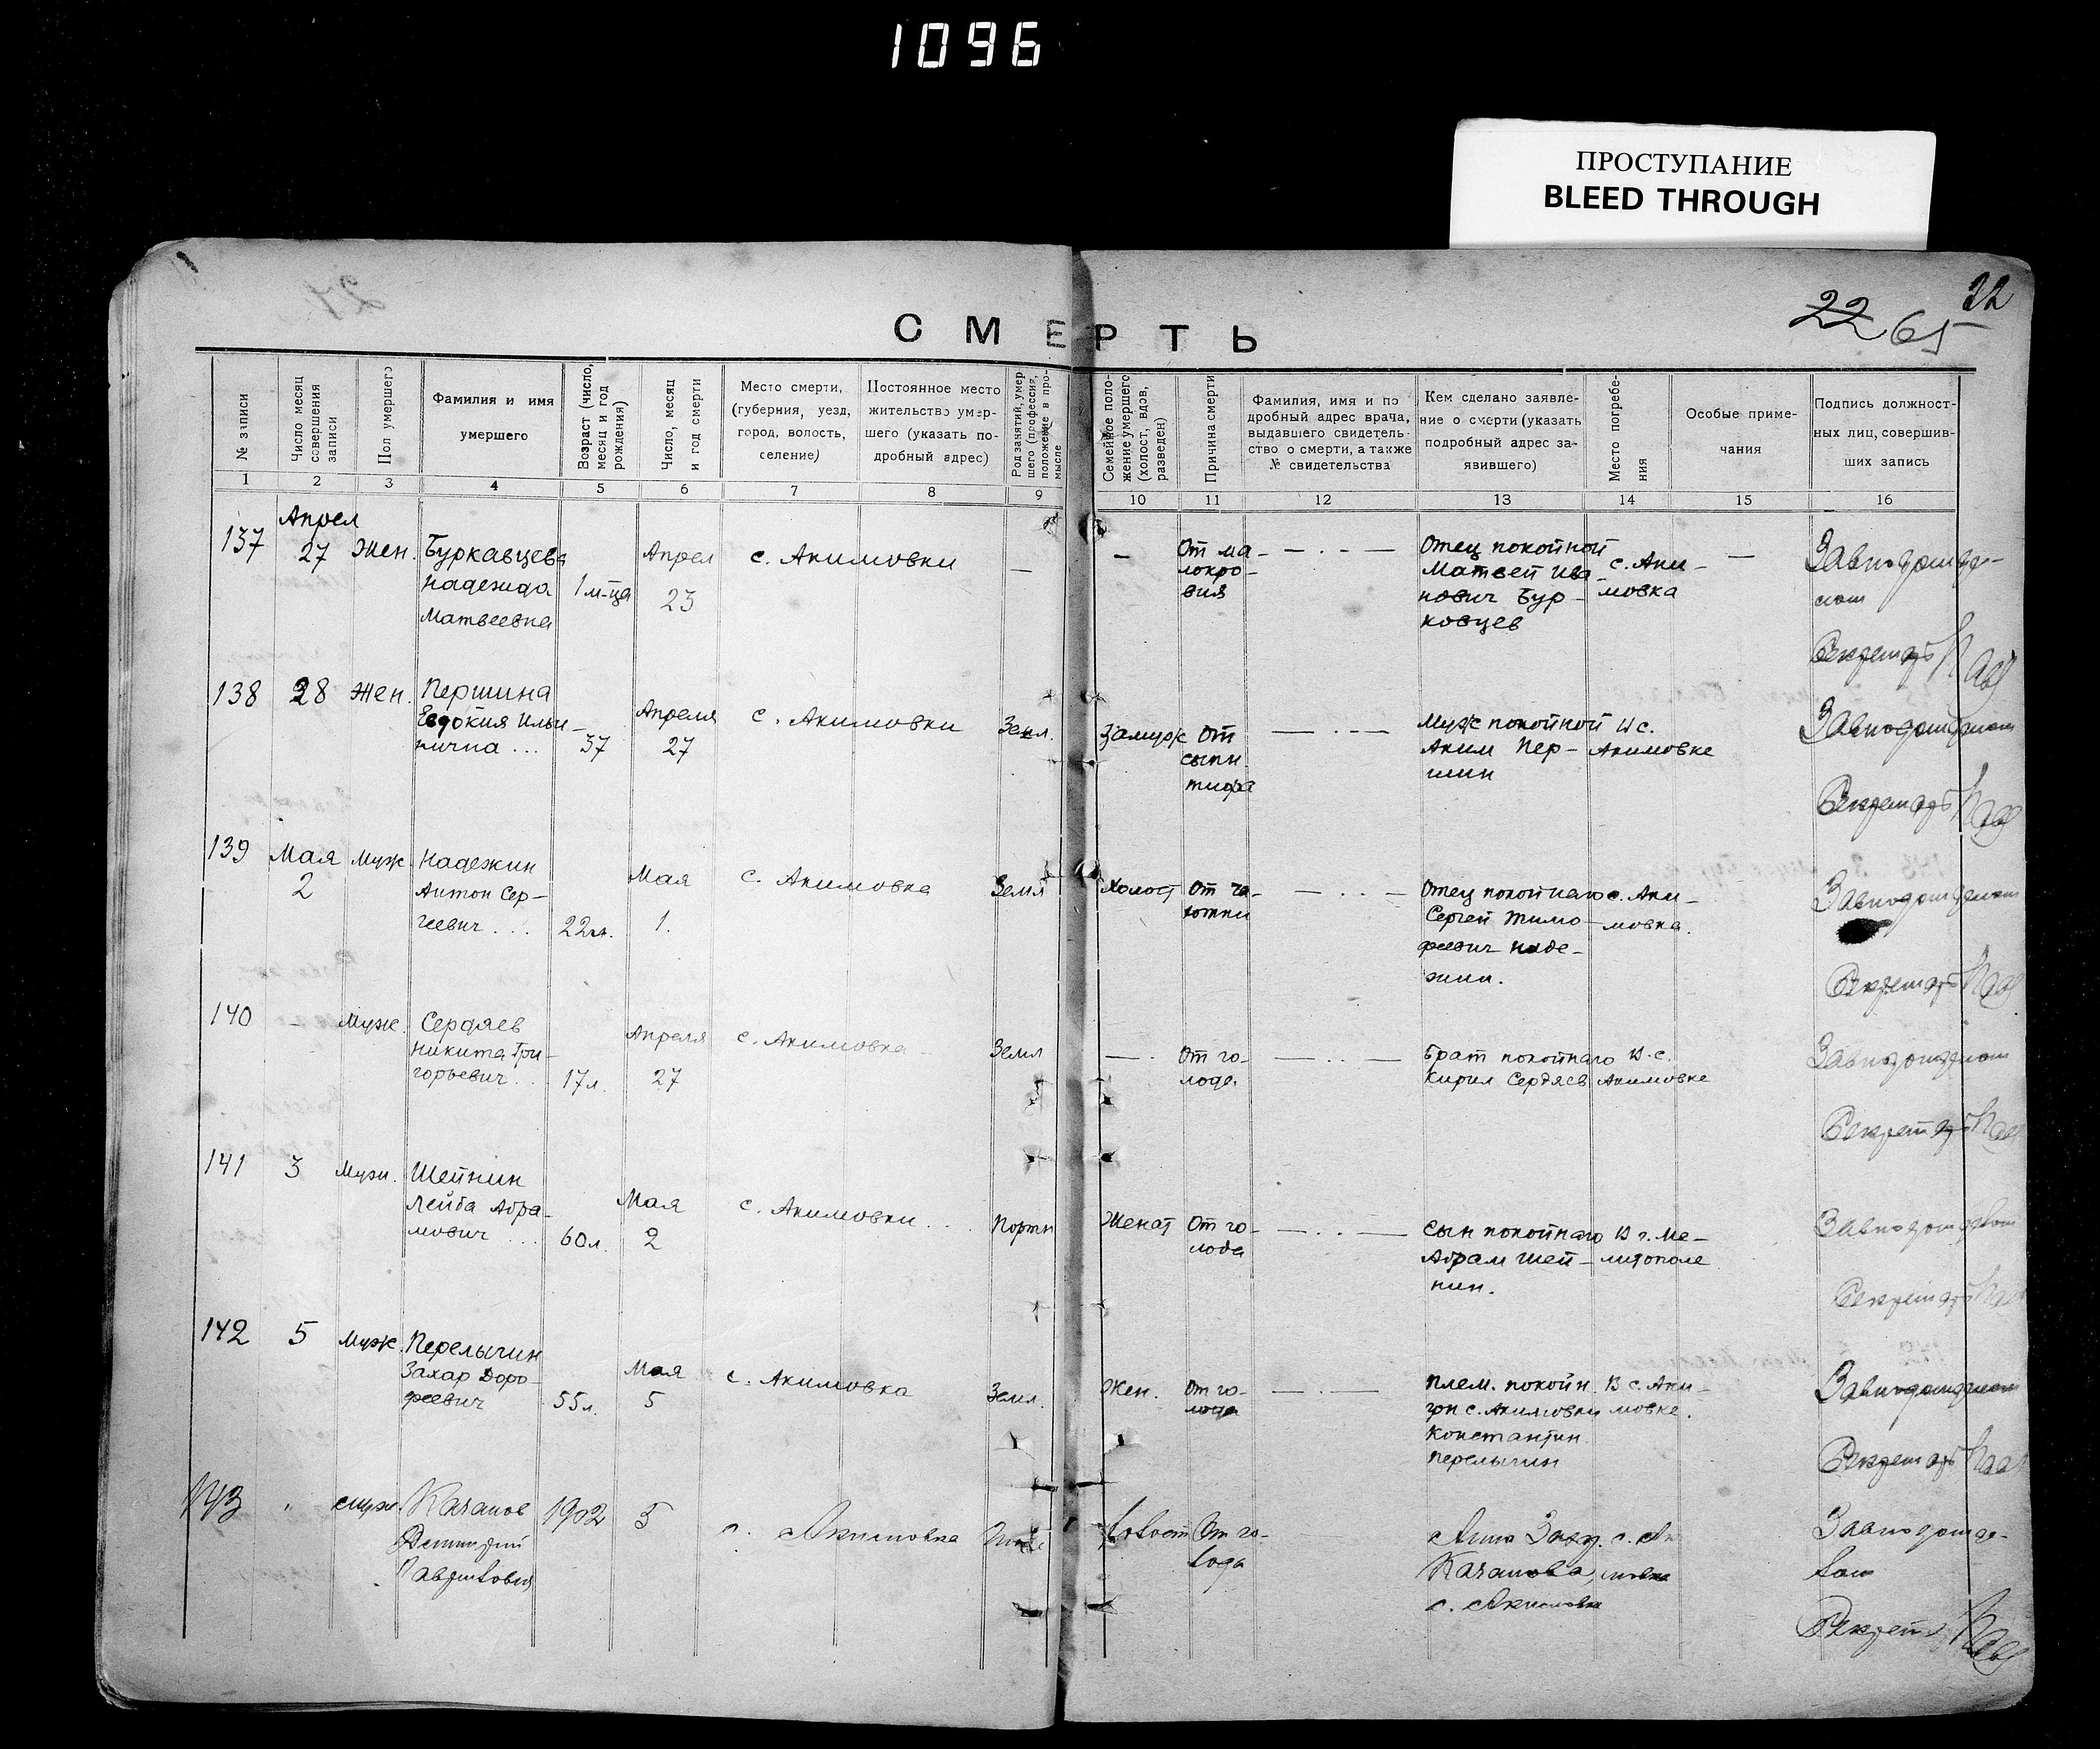 1096
ПРОСТУПАНИЕ
BLEED THROUGH
22
22 65
СМЕРТЬ
№ записи
Число месяц
совершения
записи
Пол умершего
Фамилия и имя
умершего
Возраст (число,
месяц и год
рождения)
Число, месяц
и год смерти
Место смерти,
(губерния, уезд,
город, волость,
селение)
Постоянное место
жительство умер-
шего (указать по-
дробный адрес)
Род занятий, умер
шего (профессия,
положение в про-
мысле
Семейное поло-
жение умершего
(холост, вдов,
разведен)
Причина смерти
Фамилия, имя и по
дробный адрес врача,
выдавшего свидетель-
ство о смерти, а также
№ свидетельства
Кем сделано заявле-
ние о смерти (указать
подробный адрес за-
явившего)
Место погребе-
ния
Особые приме-
чания
Подпись должност-
ных лиц, совершив-
ших запись
1 2 3 4 5 6 7 8 9 10 11 12 13 14 15 16
137
Апрел
27
Жен.
Буркавцева
Надежда
Матвеевна
1 м-ца
Апрел
23
с. Акимовки
—
—
От ма-
локро-
вия
— . . —
Отец покойной
Матвей Ива-
нович Бур-
ковцев
с. Аки-
мовка
—
Секретарь
138
28
Жен.
Першина
Евдокия Ильи-
нична ...
37
Апреля
27
с. Акимовки
Земл.
Замуж
От
сыпн
тифа
— . . —
Муж покойной
Аким Пер-
шин
В с.
Акимовке
Секретарь
139
Мая
2
Муж
Надежин
Антон Сер-
геевич ...
22 л.
Мая
1.
с. Акимовка
Земл
Холост
От ча-
хотки
— . . —
Отец покойнаго
Сергей Тимо-
феевич Наде-
жин.
с. Аки-
мовка.
Секретарь
140
-
Муж.
Сердяев
Никита Гри-
горьевич ..
17 л.
Апреля
27
с. Акимовка
Земл
— .
От го-
лода.
— . . —
Брат покойнаго
Кирил Сердяев
В с.
Акимовке
Секретарь
141
3
Муж.
Шейнин
Лейба Абра-
мович ...
60 л.
Мая
2
с. Акимовки ...
Портн
Женат
От го-
лода
— . . —
Сын покойнаго
Абрам Шей-
нин.
В г. Ме-
литополе
Секретарь
142
5
Муж.
Перелычин
Захар Доро-
феевич
55 л.
Мая
5
с. Акимовка
Земл.
Жен.
От го-
лода
— . . —
Плем. покойн.
гр с. Акимовки
Константин
Перелычин
В с. Аки-
мовке.
Секретарь
143
"
муж.
Качанов
Дмитрий
1902
5
с. Акимовка
Холост
От го-
лода
Анна Зах
Качанова,
с. Акимовка
Секрет